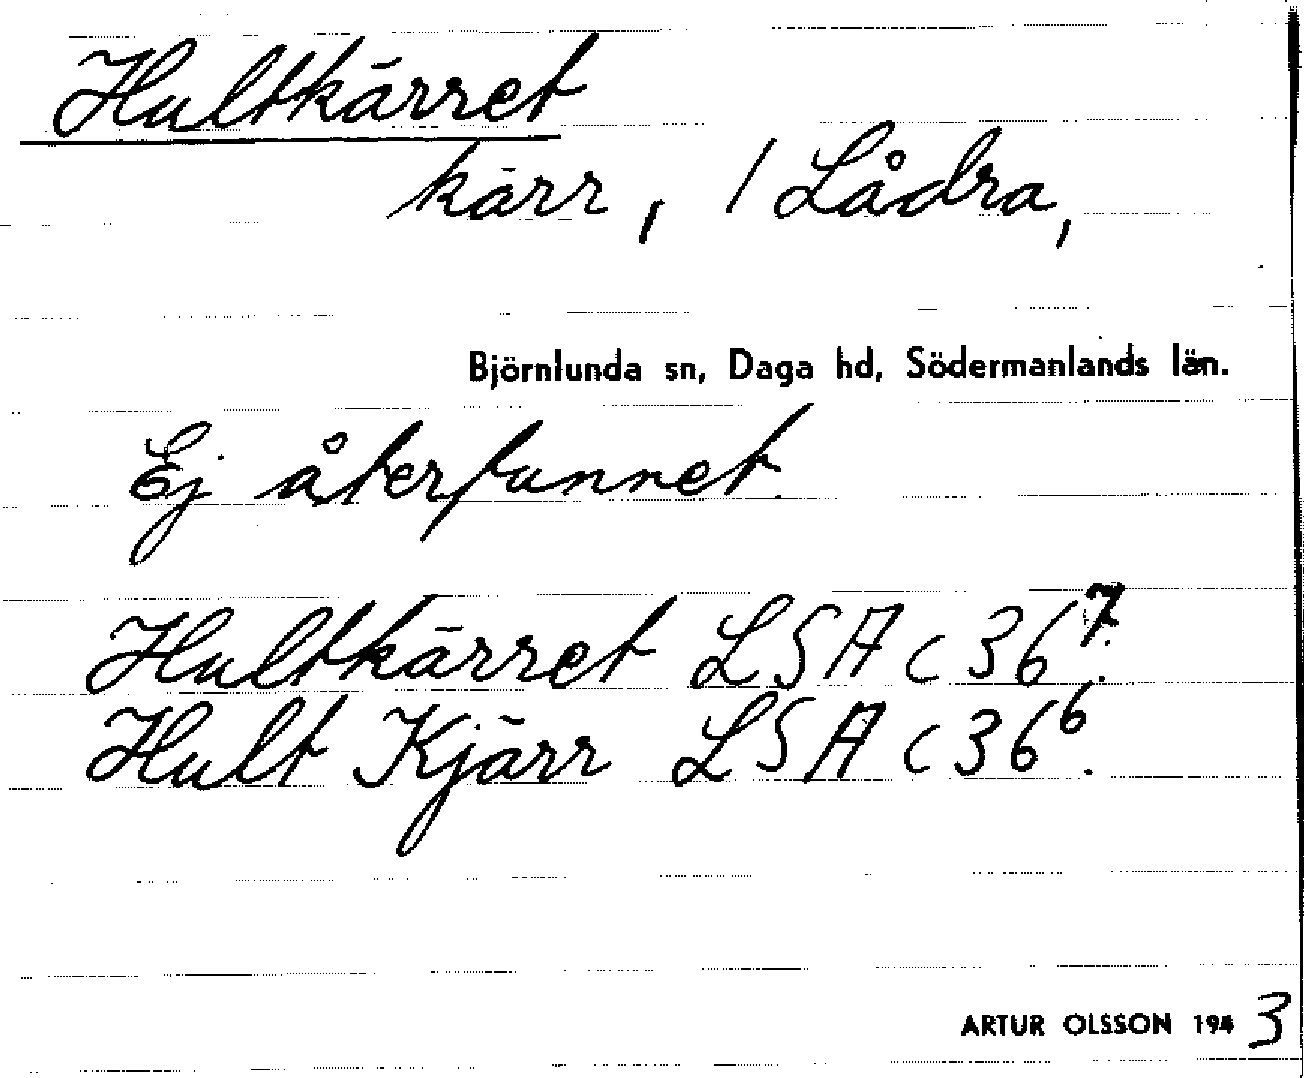 Hultkärret
kärr, / Lådra,
Björnlunda sn, Daga hd, Södermanlands län.
Ej återfunnet
Hultkärret LSA c 36⁷.
Hult Kjärr LSA c 36⁶.
ARTUR OLSSON 1943